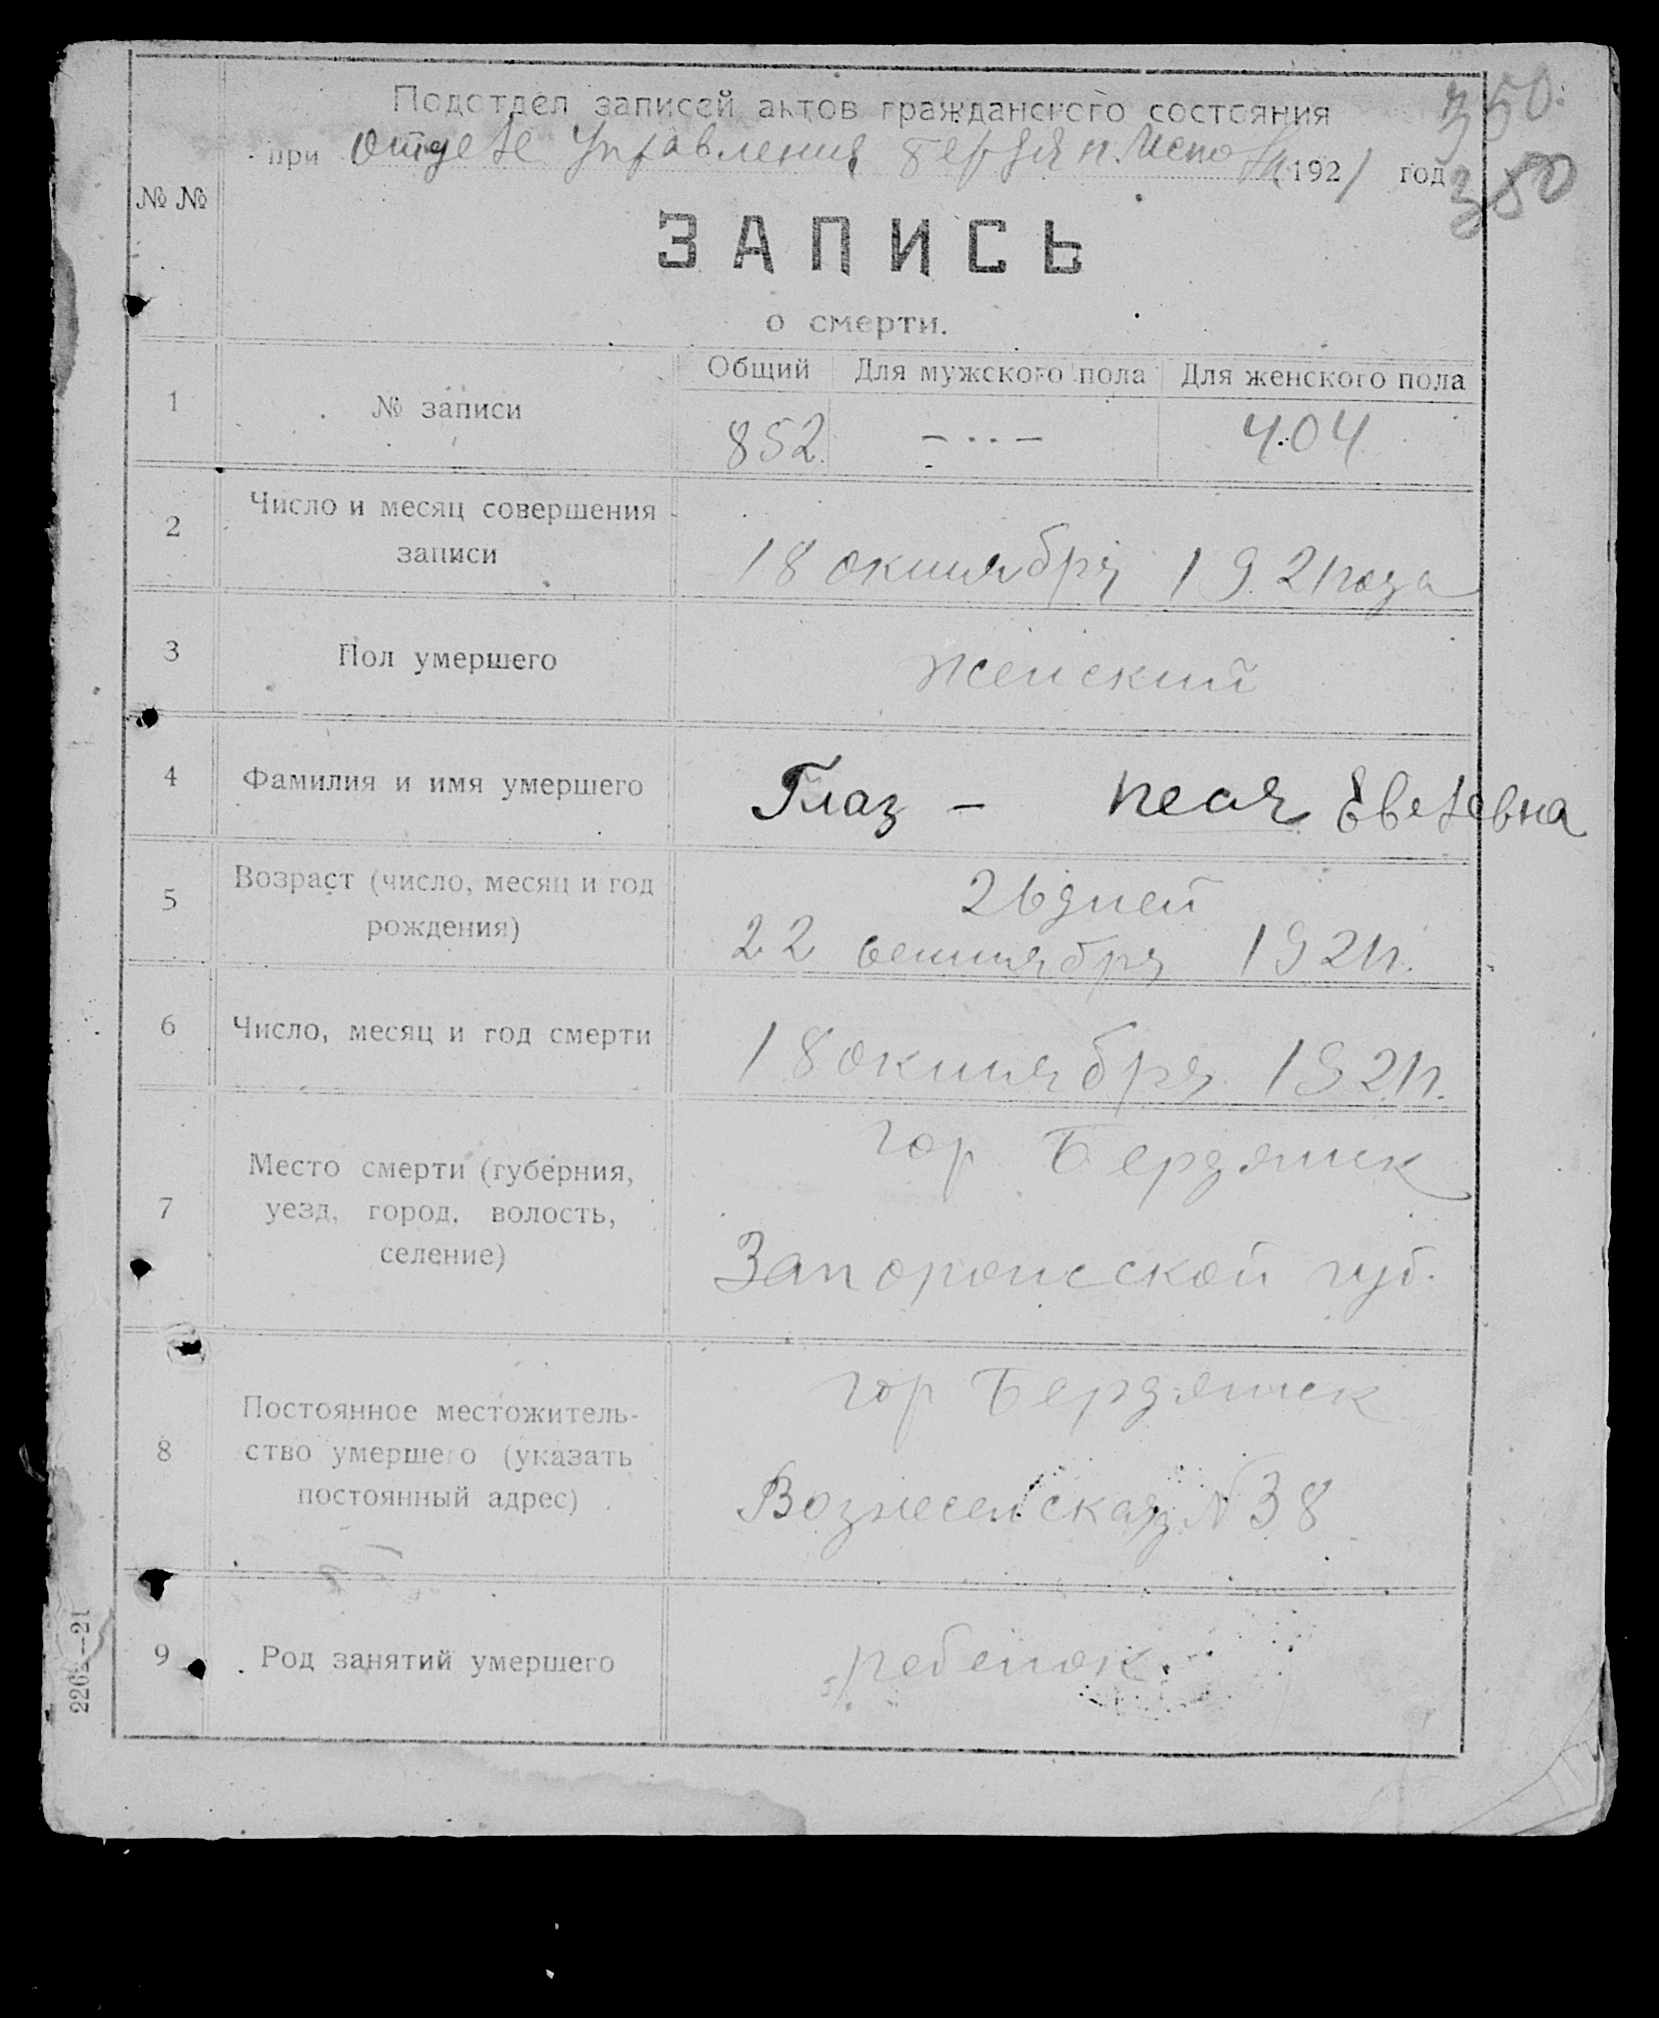 350.
Подотдел записей актов гражданского состояния
при отделе Управления Бердян. Испо 1921 год
350
№ №
ЗАПИСЬ
о смерти.
Общий Для мужского пола Для женского пола
1 № записи
852. — · · — 404
2 Число и месяц совершения
записи
18 октября 1921 года
3 Пол умершего женский
4 Фамилия и имя умершего Глаз - Песя
5 Возраст (число, месяц и год
рождения)
26 дней
22 сентября 1921 г.
6 Число, месяц и год смерти 18 октября 1921 г.
7 Место смерти (губерния,
уезд, город, волость,
селение)
гор Бердянск
Запорожской губ.
8 Постоянное местожитель-
ство умершего (указать
постоянный адрес)
гор Бердянск
Вознесенская № 38
9 Род занятий умершего ребенок